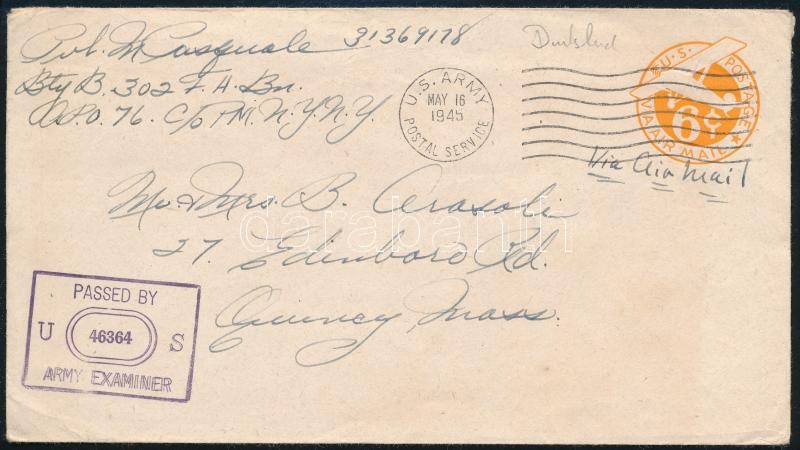 Pvt. M Pasquale 31369178
Bty B. 302 F. A. Bn.
A.P.O. 76. C/o P.M. N.Y. N.Y.
U.S. ARMY
MAY 16
1945
POSTAL SERVICE
U.S. POSTAGE
6¢
VIA AIR MAIL
Via Air Mail
Mr & Mrs. B.
27 Edinboro Rd.
Quincy Mass.
darabanth
PASSED BY
U 46364 S
ARMY EXAMINER